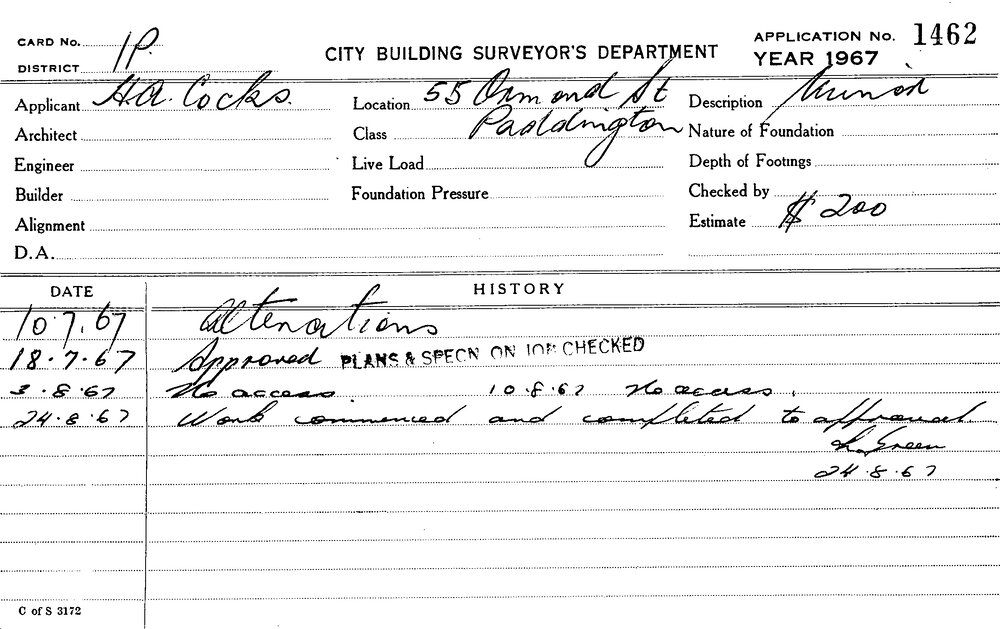 CARD No. 1P.
DISTRICT
CITY BUILDING SURVEYOR'S DEPARTMENT
APPLICATION No. 1462
YEAR 1967
Applicant H.A. Cocks.
Location 55 Ormond St Paddington
Description Minor
Architect
Class
Nature of Foundation
Engineer
Live Load
Depth of Footings
Builder
Foundation Pressure
Checked by
Alignment
Estimate $ 200
D.A.
DATE HISTORY
10.7.67 Alterations
18.7.67 Approved PLANS & SPECN ON JOB CHECKED
3.8.67 No access. 10.8.67 No access.
24.8.67 Work commenced and completed to approval.
L. Green
24.8.67
C of S 3172